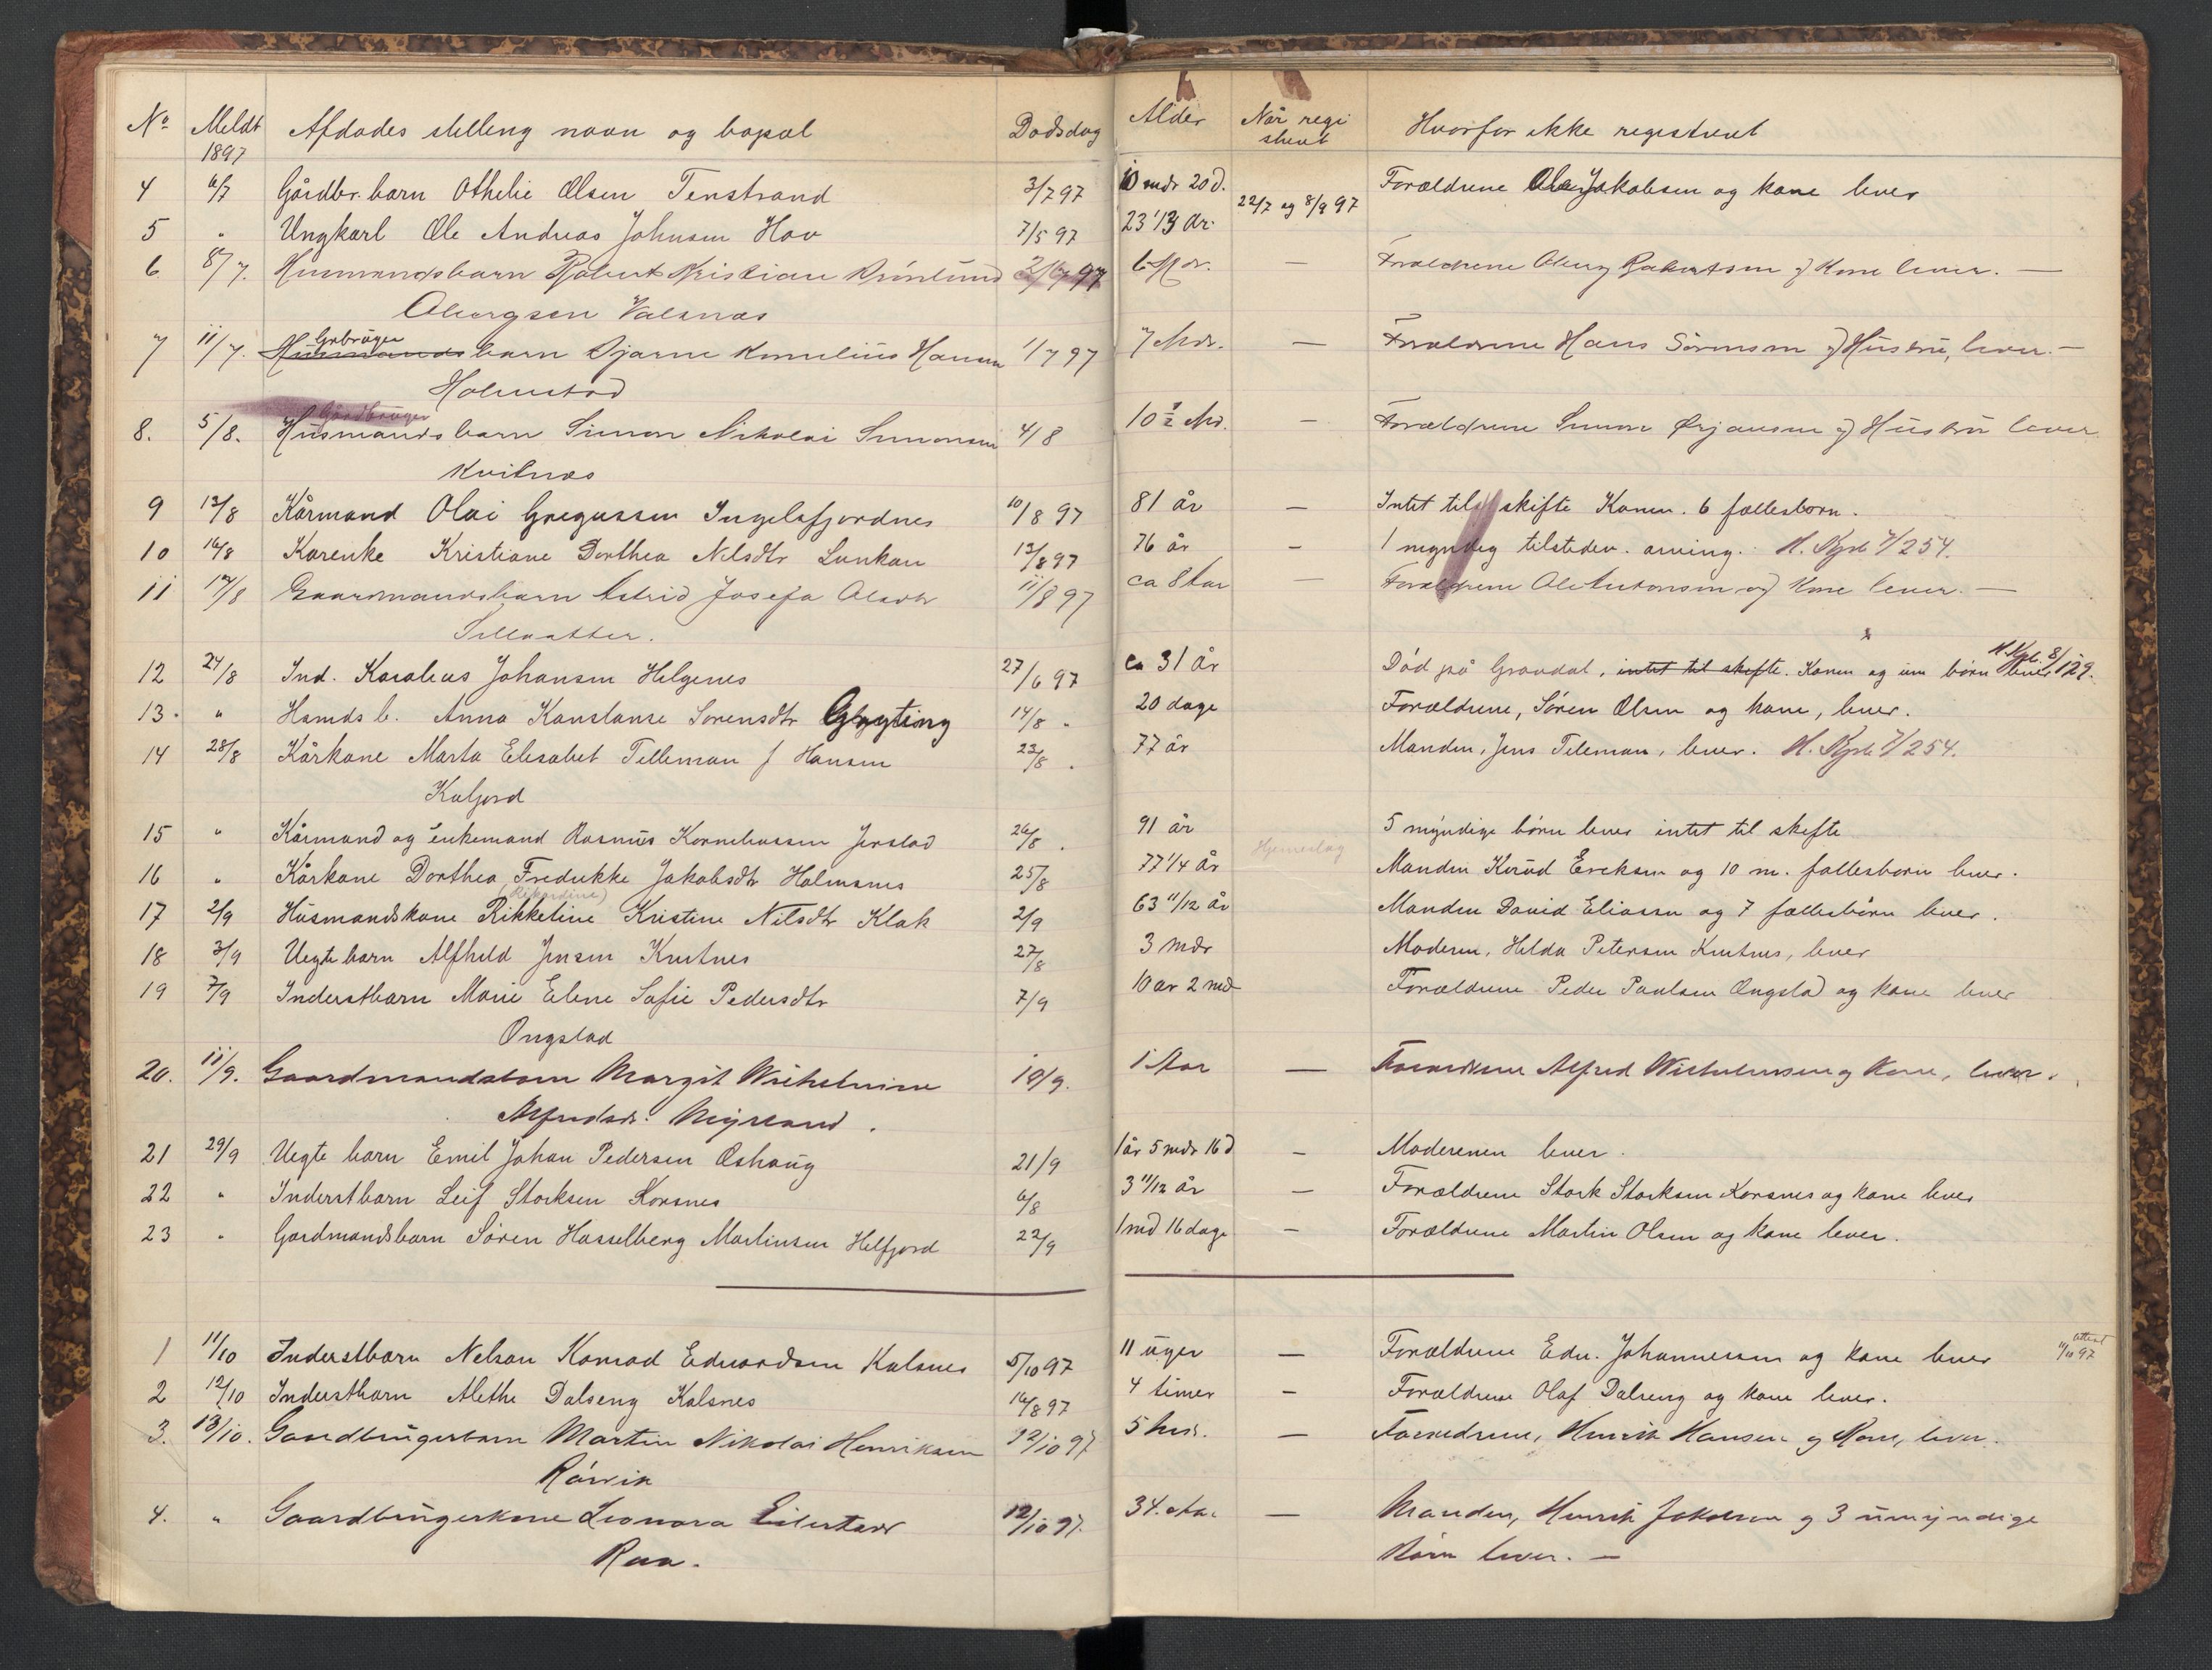 No Meldt Afdødes stilling navn og bopæl Dødsdag Alder Når regi Hvorfor ikke registreret
1897 streret
4 6/7 Gårdbr. barn Othelie Olsen Tenstrand 3/7 97 10 mdr 20 d. Forældrene Ole Jakobsen og kone lever
5 " Ungkarl Ole Andreas Johnsen Hov 7/5 97 23 1/3 år. 22/7 og 8/9 97
6 8/7. Husmandsbarn Robert Kristian 97 6 Mdr. — Forældrene Robertsen og Kone lever. —
Valsnæs
7 11/7. Husmandsbarn Bjarne Kornelius Hansen 1/7 97 7 Mdr. — Forældrene Hans Sørensen og Hustru, lever. —
Gbrüger
Holmstad
Gårdbruger
8. 5/8. Husmandsbarn Simon Nikolai Simonsen 4/8 10 1/2 Md. — Forældrene Simon Ørjansen og Hustru lever
Kvitnæs
9 12/8 Kårmand Olai Gregussen Ingelsfjordnes 10/8 97 81 år — Intet til skifte Konen. 6 fællesbørn.
10 16/8 Kårenke Kristiane Dorthea Nilsdtr Lunkan 13/8 97 76 år — 1 myndig tilstedev. arving. 7/254.
11 17/8 Gaardmandsbarn Astrid Josefa Olsdtr 11/8 97 ca 8 Aar — Forældrene Ole Antonsen og Kone lever. —
12 24/8 Ind. Karolius Johansen Helgenes 27/6 97 ca 31 år Død på Gravdal, intet til skifte. Konen og um børn lever 8/129.
13. " Hsmds b. Anna Konstanse Sørensdtr Grytting 14/8 " 20 dage Forældrene, Søren Olsen og kone, lever.
14 28/8 Kårkone Marta Elisabet Tilleman f Hansen 23/8 . 77 år Manden, Jens Tileman, lever. 7/254.
Kaljord
15 " Kårmand og enkemand Rasmus Korneliussen Jerstad 26/8 . 91 år 5 myndige børn lever intet til skifte
16 " Kårkone Dorthea Fredrikke Jakobsdtr Holmsnes 25/8 77 1/4 år Manden Knud Ericksen og 10 m. fællesbørn lever.
17 2/9 Husmandskone Rikkeline Kristine Nilsdtr Klak 2/9 63 11/12 år Manden David Eliassen og 7 fællesbørn lever.
18 3/9 Uegte barn Alfhild Jensen Knutnes 27/8 3 mdr Moderen, Helda Petersen Knutnes, lever
19 7/9 Inderstbarn Marie Elene Sofie Pedersdtr 7/9 10 år 2 md Forældrene Peder Paulsen Ongstad og kone lever
Ongstad
20. 11/9. Gaardmandsbarn Margit Wilhelmine 10/9. 1 Aar — Forældrene Alfred Wilhelmsen og Kone, lever.
Alfredsdr. Myrland.
21 29/9 Uegte barn Emil Johan Pedersen Oshaug 21/9 1 år 5 mdr 16 d — Moderenen lever.
22 " Inderstbarn Leif Storksen Korsnes 6/8 3 11/12 år — Forældrene Stork Storksen Korsnes og kone lever
23 " Gårdmandsbarn Søren Hasselberg Martinsen Helfjord 22/9 1 md 16 dage — Forældrene Martin Olsen og kone lever.
1 11/10 Inderstbarn Nelson Konrad Edvardsen Kalsnes 5/10 97 11 uger — Forældrene Edv. Johannessen og kone lever attest 11/10 97
2 12/10 Inderstbarn Alethe Dalseng Kalsnes 16/8 97 4 timer — Forældrene Olaf Dalseng og kone lever.
3. 13/10. Gaardbrugerbarn Martin Nikolai Henriksen 12/10 97 5 Mdr. — Forældrene, Henrik Hansen og Kone, lever.
Rørvik
4. " Gaardbrugerkone Leonora Eilertsdr 12/10 97. 34 Aar — Manden, Henrik Jakobsen og 3 umyndige
Raa. Børn lever. —